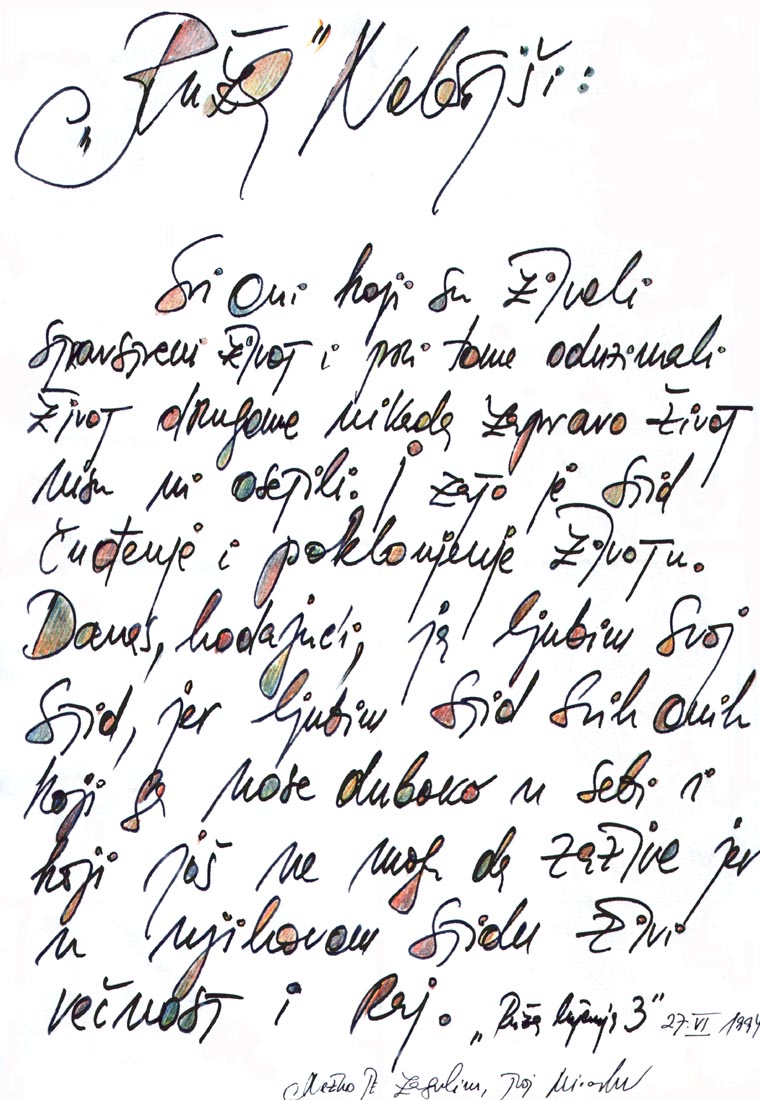 „Ruža" Nebojši:
Svi Oni koji su Živeli
stvarstveni život i pri tome oduzimali
život drugome nikada zapravo život
nisu ni osetili. I zato je stid
čuđenje i poklonjenje Životu.
Danas, hodajući, ja ljubim svoj
stid, jer ljubim stid svih onih
koji ga nose duboko u sebi i
koji još ne mogu da zažive jer
u njihovom stidu živi
večnost i Raj. „Ruža 3" 27. VI 1994
Nežno te zagrlim, tvoj Miroslav